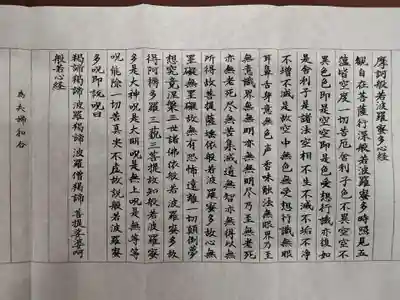 摩訶般若波羅蜜多心経
観自在菩薩行深般若波羅蜜多時照見五
蘊皆空度一切苦厄舎利子色不異空空不
異色色即是空空即是色受想行識亦復如
是舎利子是諸法空相不生不滅不垢不浄
不増不減是故空中無色無受想行識無眼
耳鼻舌身意無色声香味触法無眼界乃至
無意識界無無明亦無無明尽乃至無老死
亦無老死尽無苦集滅道無智亦無得以無
所得故菩提薩埵依般若波羅蜜多故心無
罣礙無罣礙故無有恐怖遠離一切顛倒夢
想究竟涅槃三世諸佛依般若波羅蜜多故
得阿耨多羅三藐三菩提故知般若波羅蜜
多是大神呪是大明呪是無上呪是無等等
呪能除一切苦真実不虚故説般若波羅蜜
多呪即説呪曰
羯諦羯諦波羅羯諦波羅僧羯諦菩提娑婆訶
般若心経
為夫婦和合